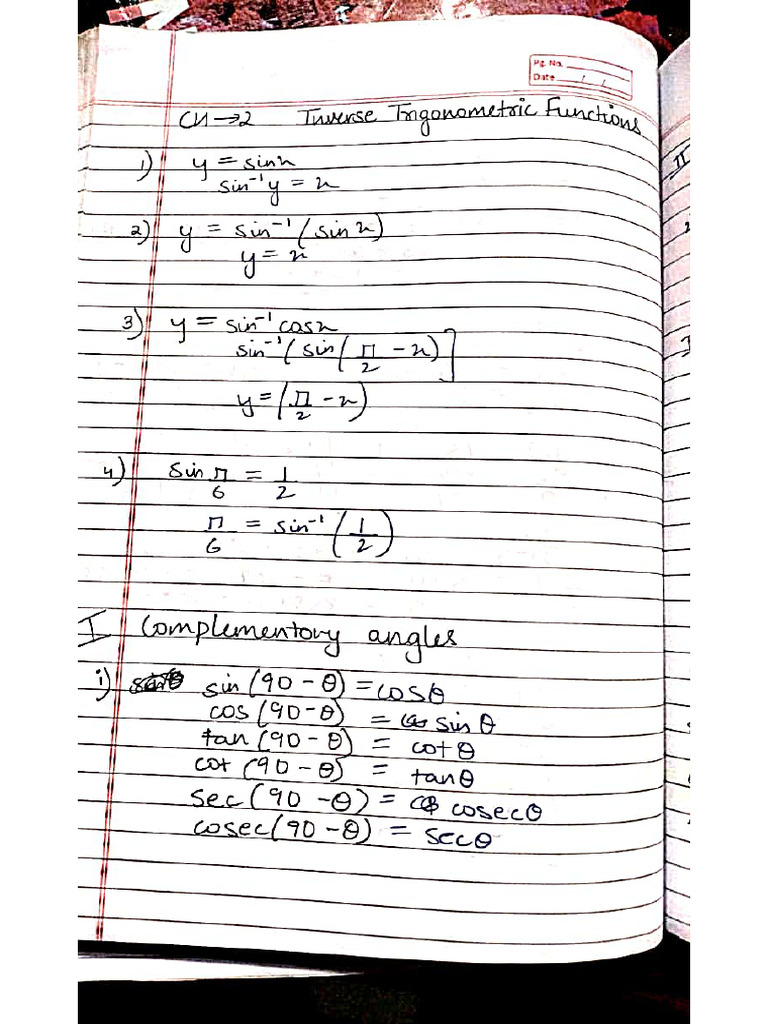 Pg. No.
Date / /
CH→2 Inverse Trigonometric Functions
1) y = sinx
sin⁻¹y = x
2) y = sin⁻¹(sinx)
y = x
3) y = sin⁻¹cosx
sin⁻¹(sin(π/2 - x)]
y = (π/2 - x)
4) sin π/6 = 1/2
π/6 = sin⁻¹(1/2)
I Complementory angles
i) sin(90 - θ) = cosθ
cos(90-θ) = sinθ
tan(90-θ) = cotθ
cot(90-θ) = tanθ
sec(90-θ) = cosecθ
cosec(90-θ) = secθ